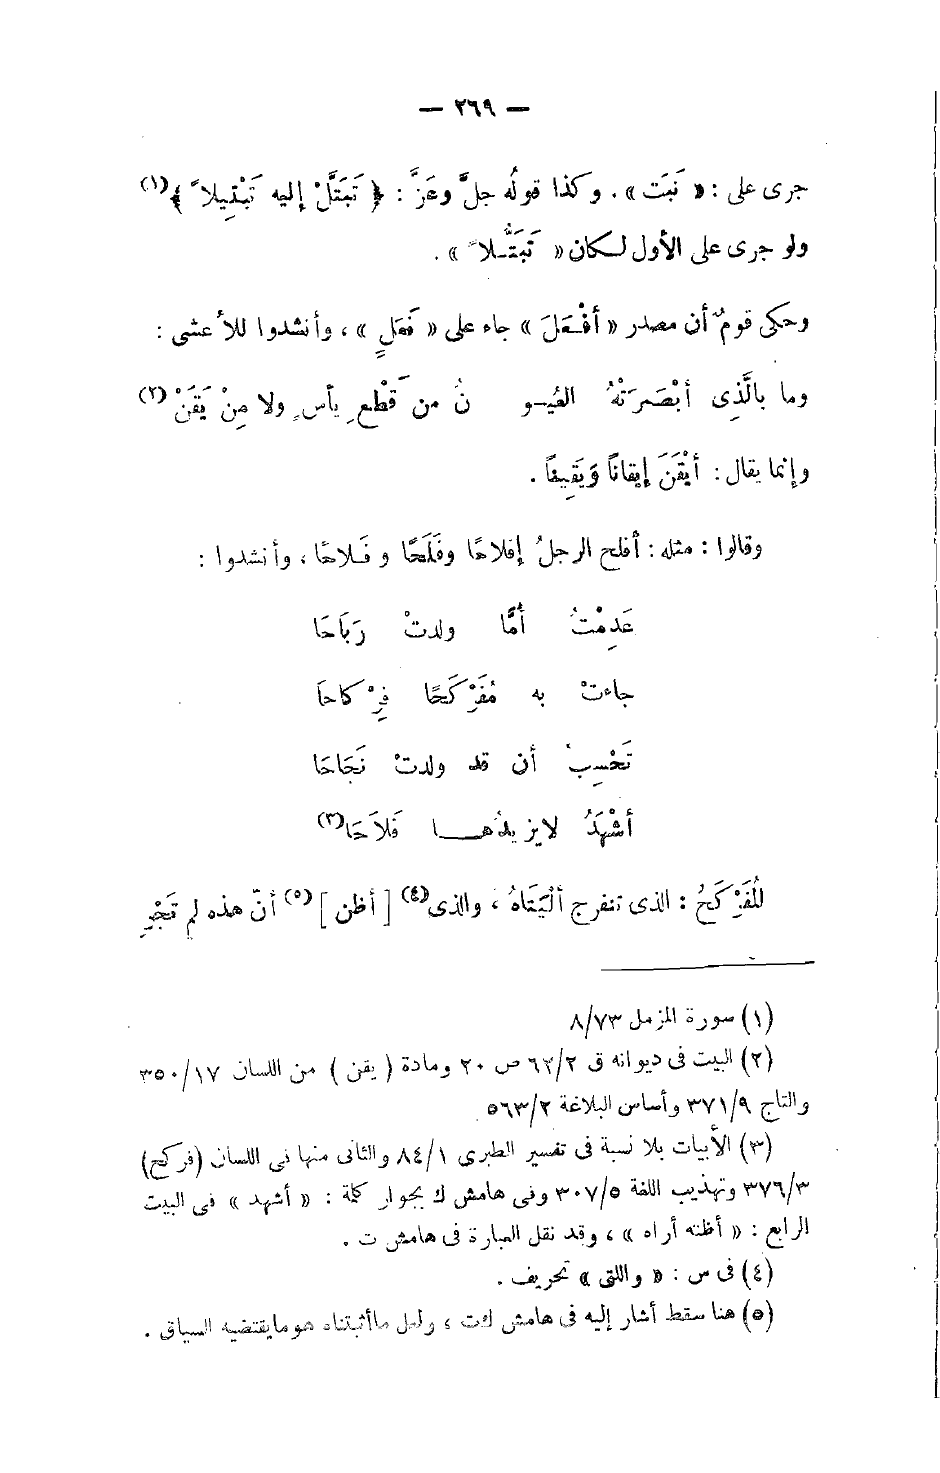 — ٢٦٩ —
جرى على : « نَبَت » . وكذا قولُه جلَّ وعَزَّ : ﴿ تَبَتَّلْ إليه تَبْتِيلاً ﴾(١)
ولو جرى على الأول لكان « تَبَتُّلاً » .
وحكى قومٌ أن مصدر « أفْعَلَ » جاء على « فَعَلٍ » ، وأنشدوا للأعشى :
وما بالَّذِى أبْصَرَتْهُ العُيُو نُ من قَطْعِ يأسٍ ولا مِنْ يَقَنْ(٢)
وإنما يقال : أيْقَنَ إيقاناً وَيَقِيناً .
وقالوا : مثله : أفلح الرجلُ إفلاحًا وفَلَحًا وفَلاحًا ، وأنشدوا :
عَدِمْتُ أُمًّا ولدتْ رَبَاحَا
جاءتْ به مُفَرْكَحًا فِرْكاحاَ
تَحْسِبُ أن قد ولدتْ نَجَاحَا
أشْهَدُ لايزيدُهـــا فَلاَحَا(٣)
المُفَرْكَحُ : الذى تنفرج ألْيَتَاهُ ، والذى(٤) [ أظن ](٥) أنّ هذه لم تَجْرِ
(١) سورة المزمل ٨/٧٣
(٢) البيت فى ديوانه ق ٦٢/٢ ص ٢٠ ومادة ( يقن ) من اللسان ٣٥٠/١٧
والتاج ٣٧١/٩ وأساس البلاغة ٥٦٣/٢
(٣) الأبيات بلا نسبة فى تفسير الطبرى ٨٤/١ والثانى منها فى اللسان (فركح)
٣٧٦/٣ وتهذيب اللغة ٣٠٧/٥ وفى هامش ك بجوار كلمة : « أشهد » فى البيت
الرابع : « أظنه أراه » ، وقد نقل العبارة فى هامش ت .
(٤) فى س : « واللتى » تحريف .
(٥) هنا سقط أشار إليه فى هامش ك ت ، ولعل ماأثبتناه هو مايقتضيه السياق .